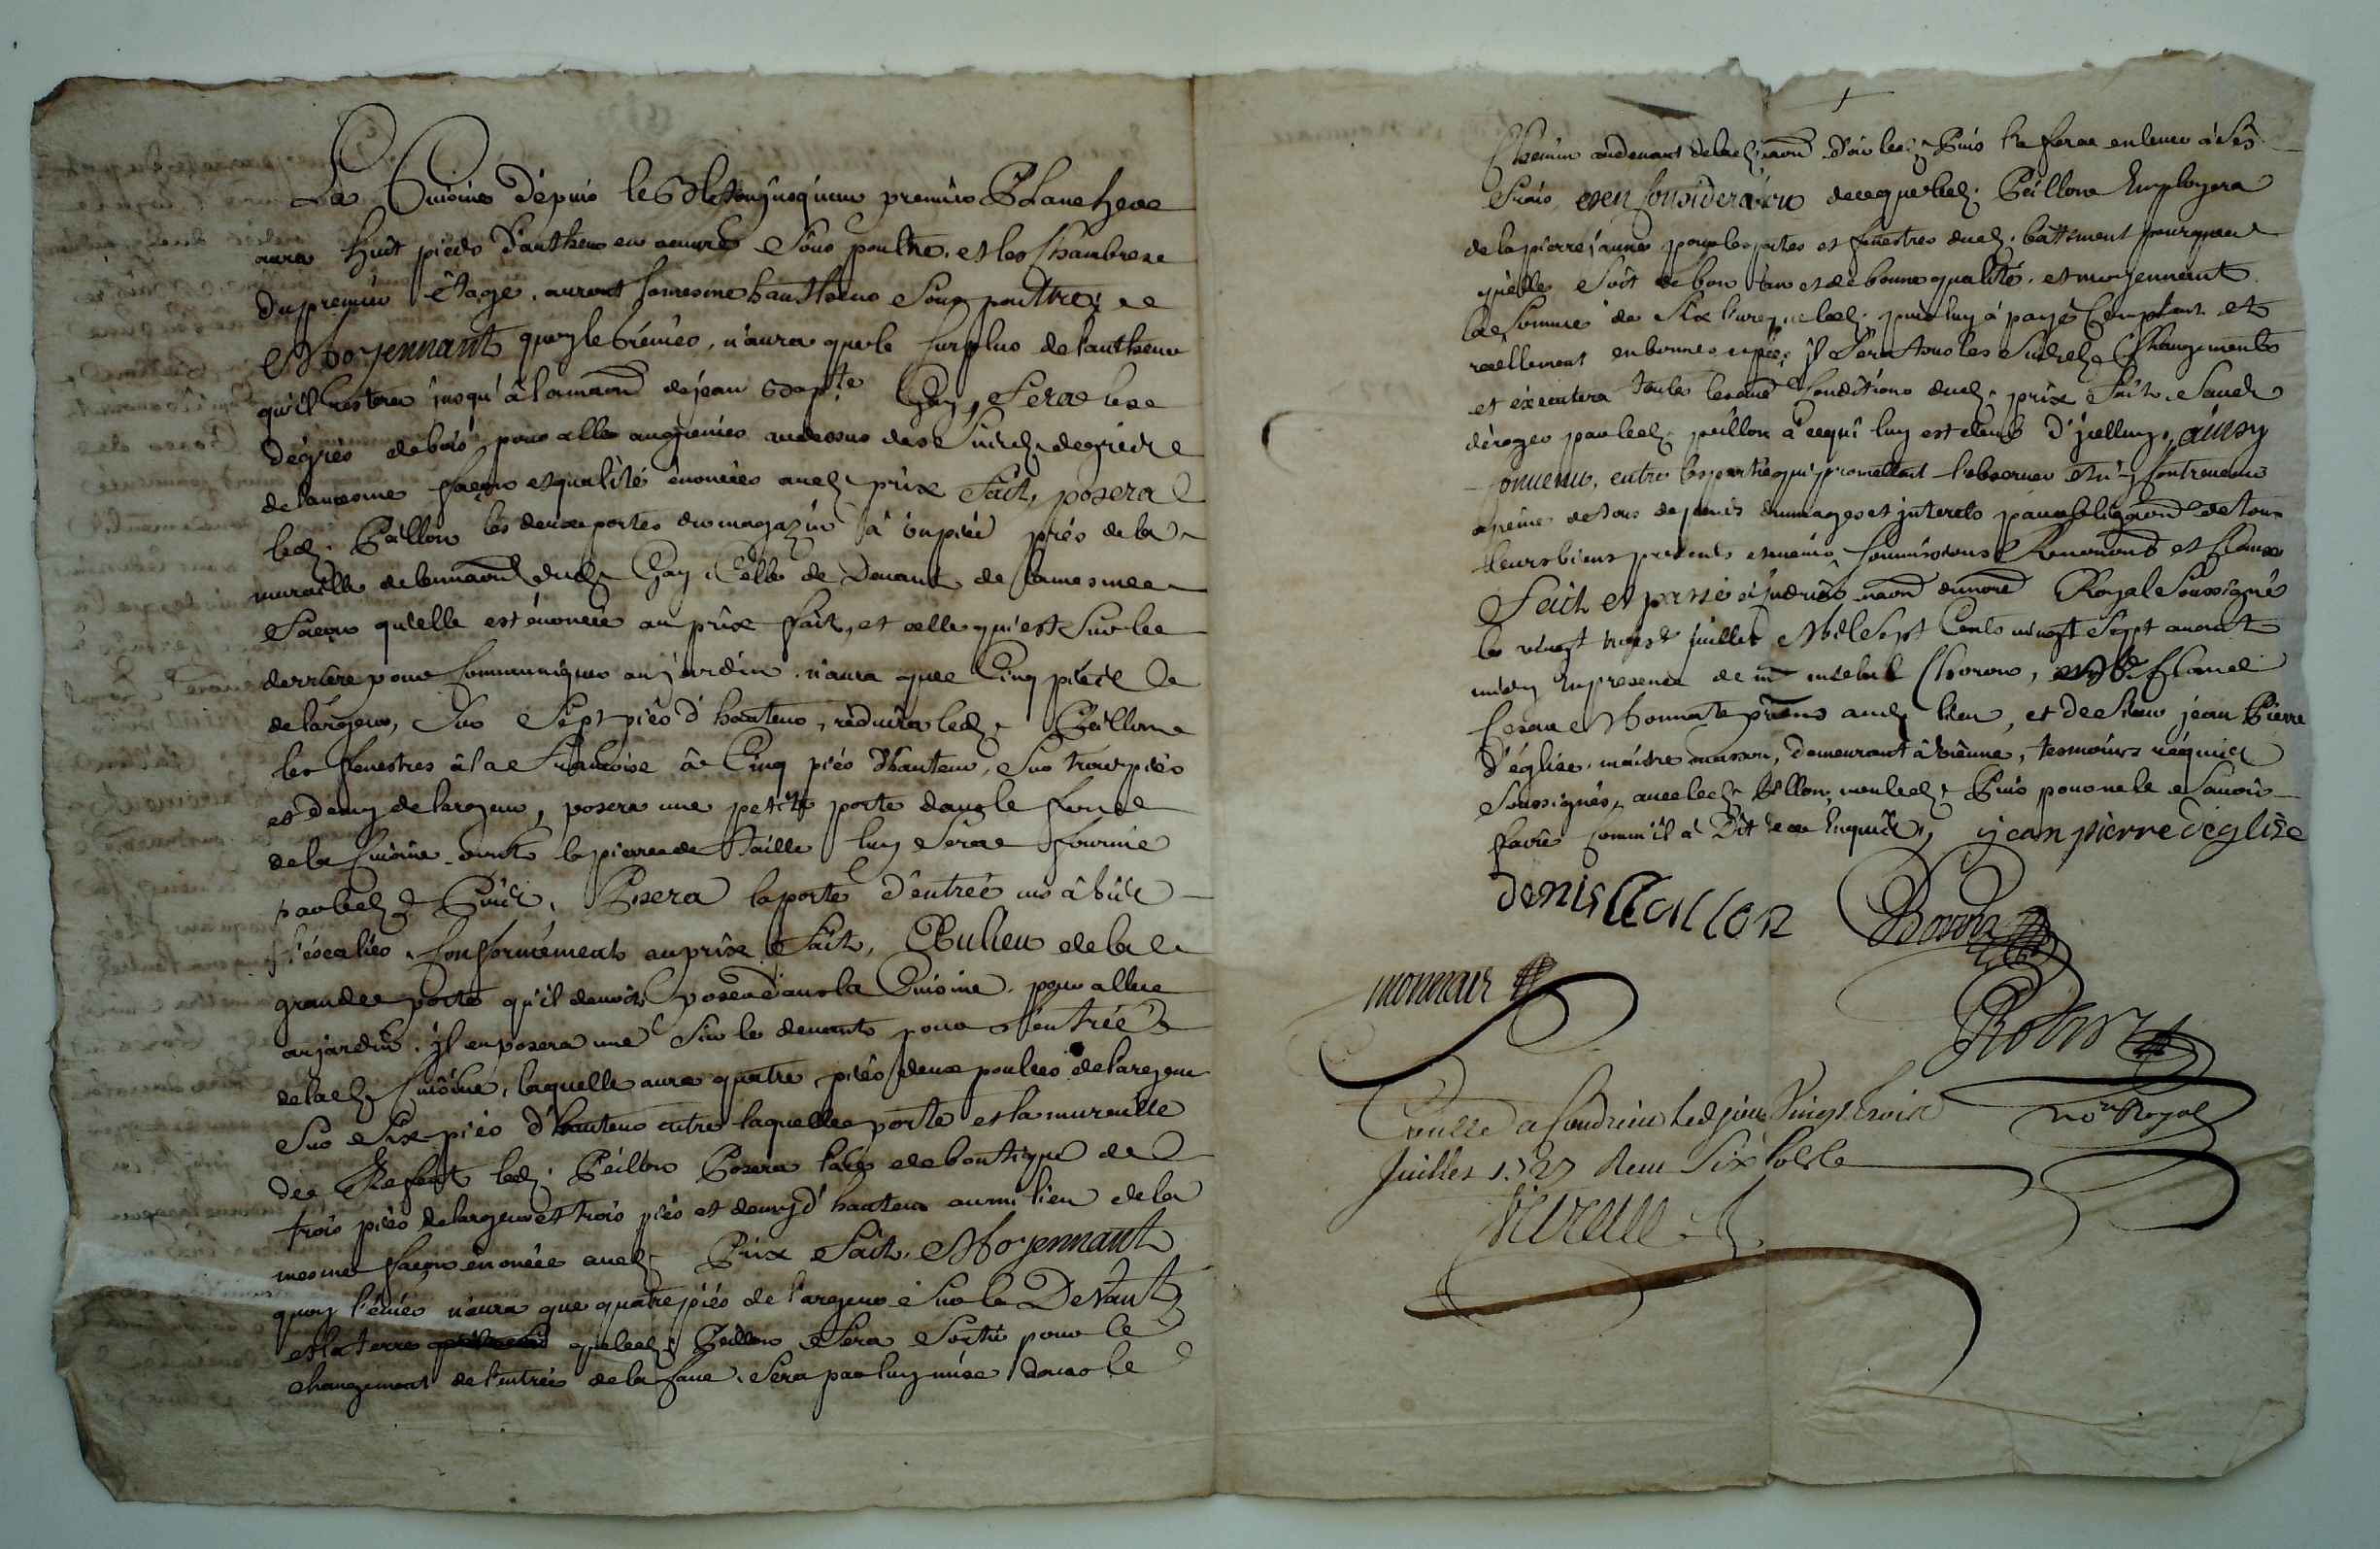 La Cuisine dépuis le jusqu'au premier Planchere
aura huit pieds d'autheur en oeuvre sous poultre. et les Chambres
du premier êtage. auront la mesme hautheur sous poutre; 
Moyennant quoy le n'aura que le surplus de l'autheur
qu'il restera jusqu'à la maon de jean Gay, Sera les
dégrés de bois pour aller au grenier au dessus des susd. degrés
de la mesme façon et qualité énoncées aud. prix fait, posera
led. Peillon les deux portes du magazin à un pié prés de la
muraille de la maon dud. Gay, Celle de Devant de la mesme
façon qu'elle est énoncée au prix fait, et celle qu'est sur le
derriére pour Communiquer au jardin. n'aura que Cinq piéds
de largeur, sur sept piés d'hauteur, réduira led. Peillon
les fenestres à la Francoise à Cinq piés d'hauteur, sur trois piés
et demy de largeur, posera une petitte porte dans le fond
de la Cuisine dont la pierre de Taille luy sera fournie
par led. Puis, Posera la porte d'entrée vis à vis
l'éscalier. Conformément au prix fait, Au lieu de la
grande porte qu'il devoit poser dans la Cuisine. pour aller
au jardin. jl en posera une sur le devant pour l'entrée
de lad. Cuisine, laquelle aura quatre piés deux poulces de largeur
sur six piés d'hauteur entre laquelle porte et la muraille
de Refent led. Peillon Posera l'arc de boutique de
trois piés de largeur et trois piés et demy d'hauteur au milieu de la
mesme façon énoncée aud. Prix fait, Moyennant
quoy l'évier n'aura que quatre piés de largeur sur le Devant
et la terre que led. Peillon sera sortir pour le
changement de l'entrée de la Cave. sera par luy mise dans le
Chemin au devant de lad. maon d'ou led. Puis la fera enlever à ses
frais, et en Considération de ce que led. Peillon Employera
de la pierre jaune pour les portes et fenestres dud. battiment pourquen
qu'elle soit de bon et de bonne qualité. et moyennant
la somme de six livres que led. puis luy à payé Comptant et
reellement en bonnes jl sera tous les susd. Changements
et éxecutera toutes les Conditions dud. prix fait, sans
déroger par led. peillon à ce qui luy est dû d'jcelluy, ainsy
Convenu, entre les parties qui promettent l'observer et n'y Contrevenir
a peine de tous depens dommages et jnterets par obligaon de tous
leurs biens presents et avenir, soumissions Renonons et Clauses
Fait et passé à Condrieu maon du nore Royal soussigné
le vingt trois juillet Mil Sept Cents vingt sept avant
midy En presence de mr michel Choron, et Sr Claude
Cesar Monnate aud. lieu, et de sieur jean Pierre
d'église, maistre masson, demeurant à vienne, tesmoins réquis
soussignés, avec led. Peillon, non led. Puis pour ne le sçavoir
faire Comm'il à Dit de ce Enquis, jean pierre déglise
denis Peillon
monnair
Robin
no.re Royal
Conllé a Condrieu led jour Vingt trois
juillet 1727 Reçu Six sols